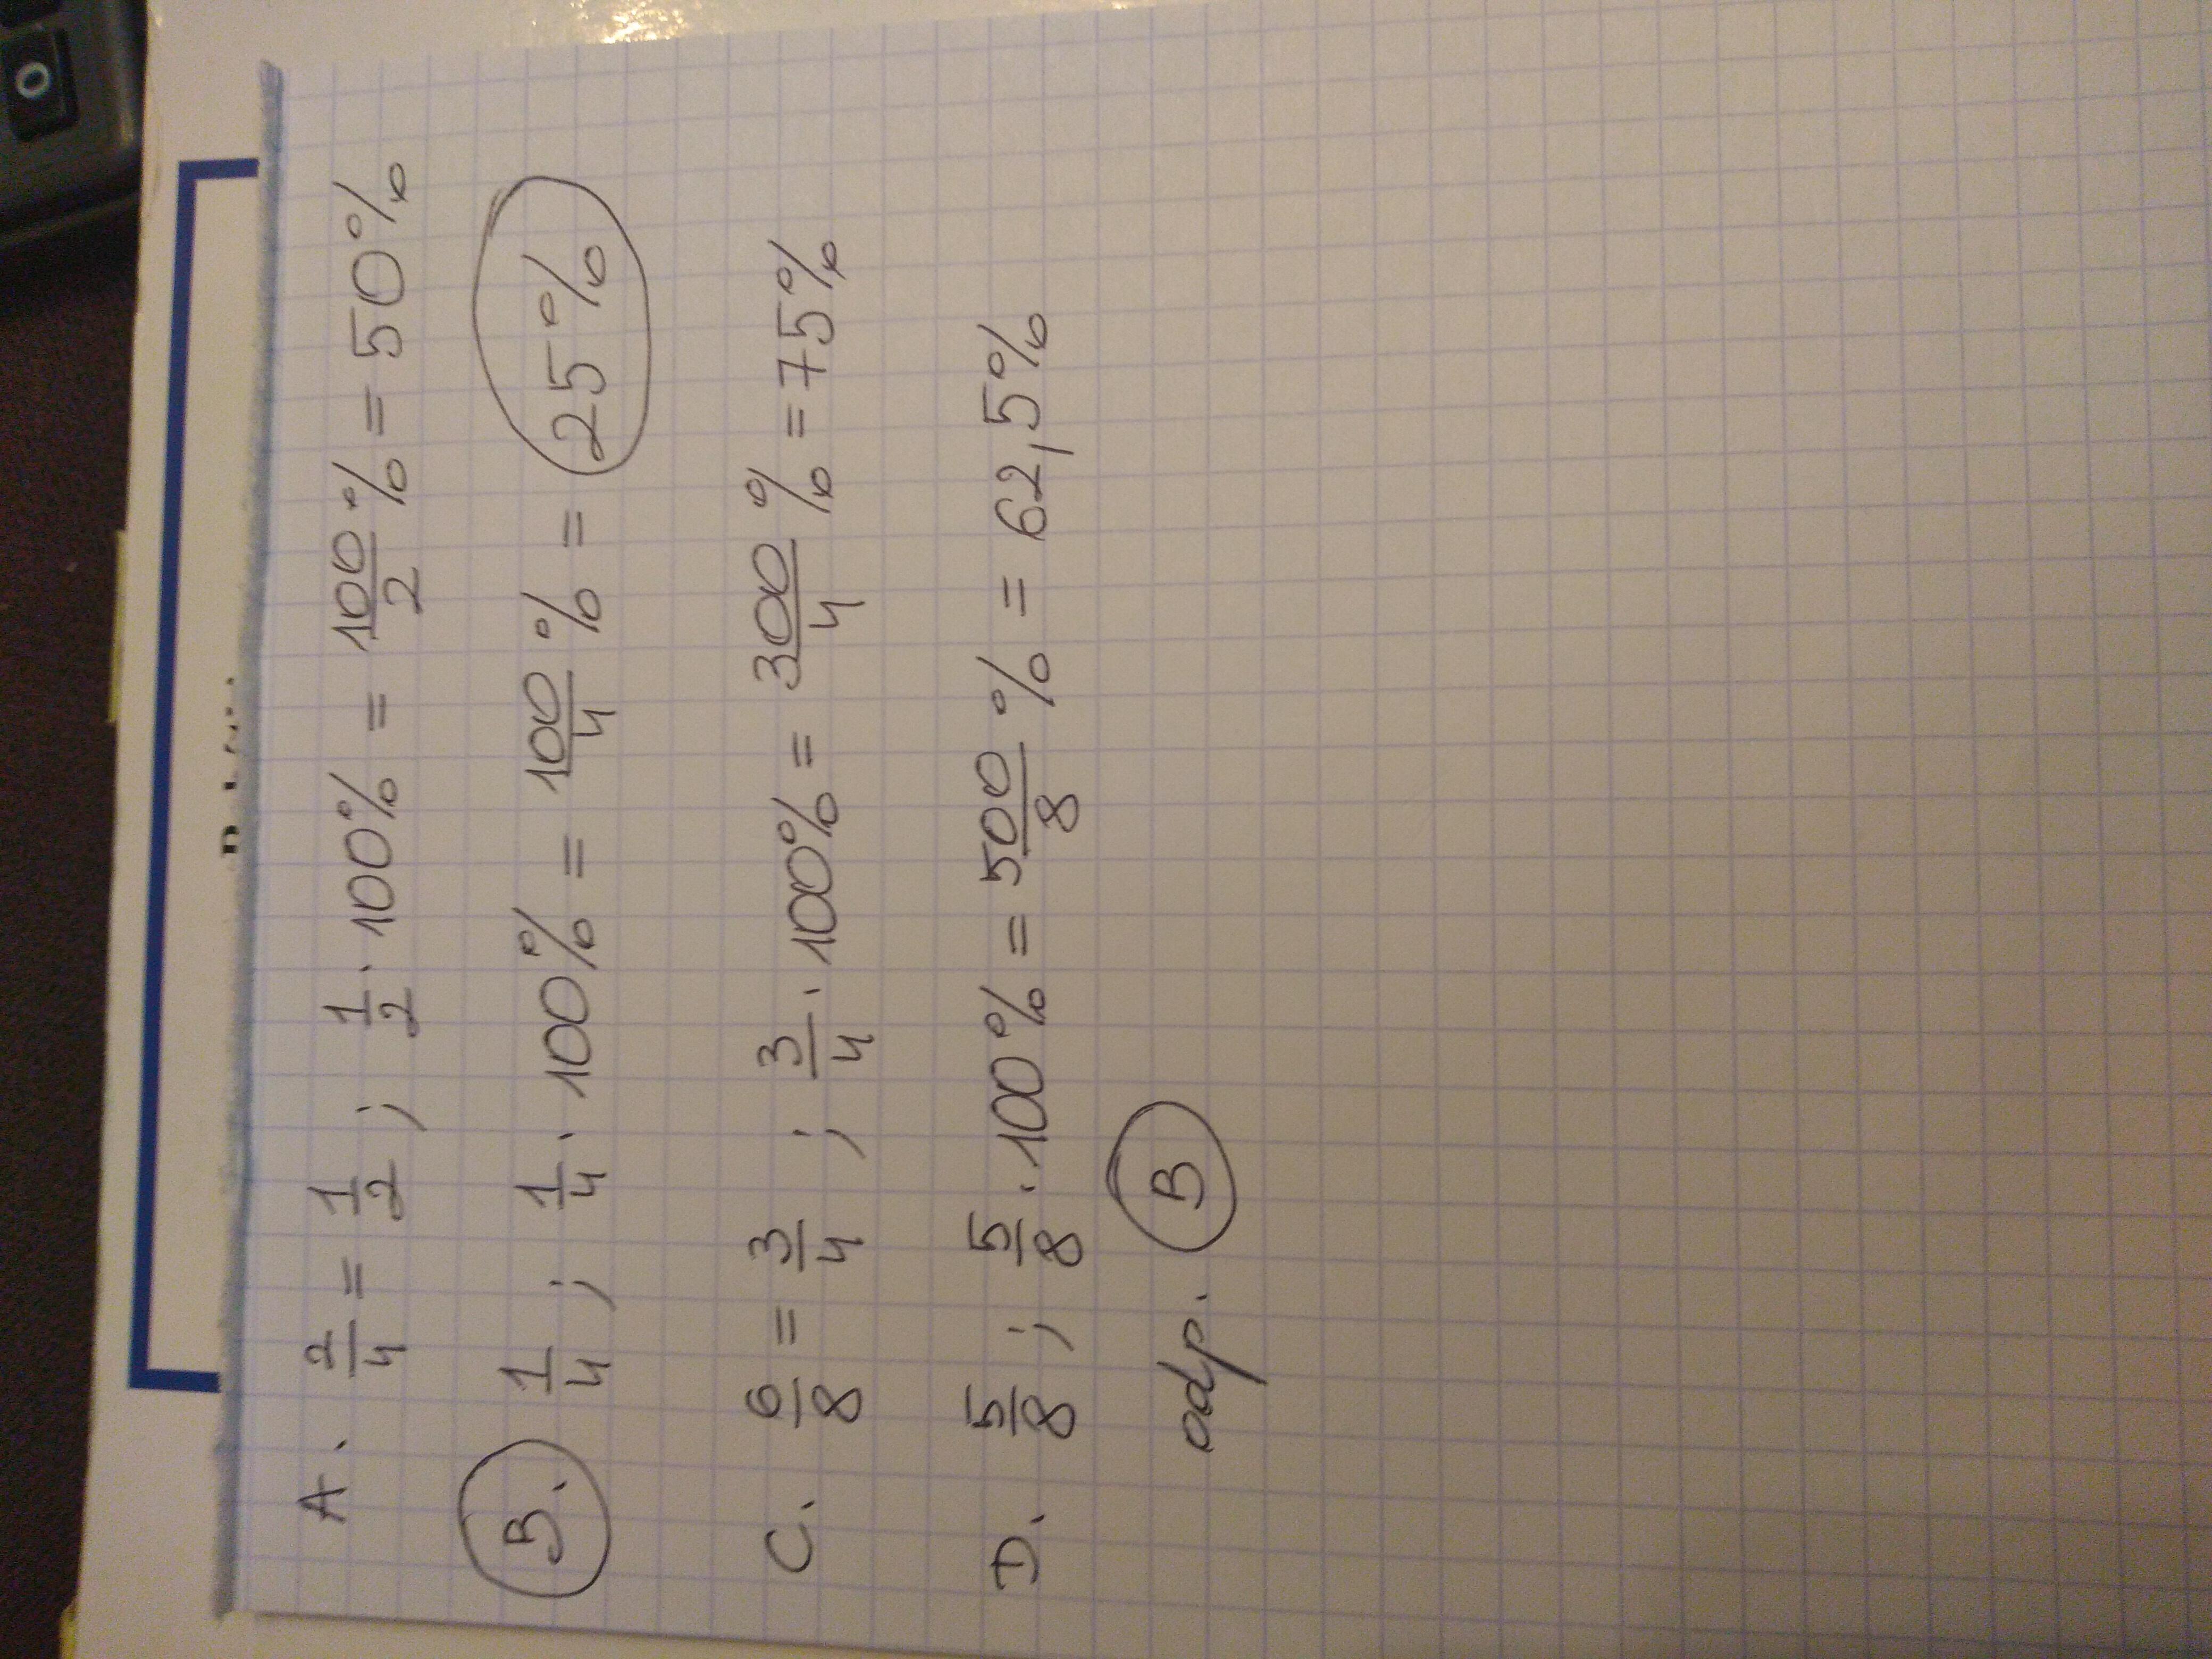 A. 2/4 = 1/2 ; 1/2 · 100% = 100/2 % = 50%
B. 1/4 ; 1/4 · 100% = 100/4 % = 25%
C. 6/8 = 3/4 ; 3/4 · 100% = 300/4 % = 75%
D. 5/8 ; 5/8 · 100% = 500/8 % = 62,5%
odp. B
0